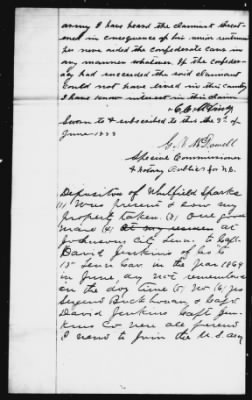 army I have heard the claimant threat
ened in consequence of his union sentiments
he never aided the confederate cause in
any manner whatever If the confeder
acy had succeeded the said claimant
Could not have lived in this County
I have no interest in this claim
Sworn to & subscribed to this the 3rd of
June 1873
G. W. McDowell
Special Commissioner
& Notary Public for N.C.
Deposition of Whitfield Sparks
(1) I was present & saw my
property taken. (2) One good
mare (4) at
Johnsons City Tenn. to Capt.
David Jenkins of Co G
13 Tenn Cav. in the year 1864
in June day not remembered
in the day time (5) No (6) yes
Sergend Buckhonan & Capt
David Jenkins Capt Jen
kins Co were all present
I want to Join the U.S. army